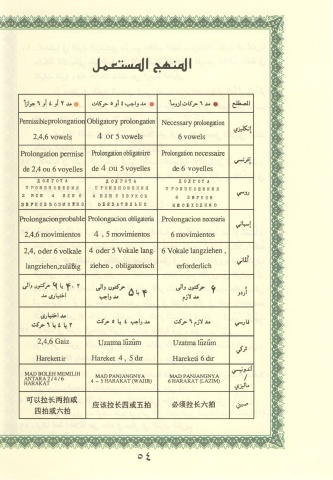 المنهج المستعمل
المصطلح مد ٦ حركات لزوماً مد واجب ٤ أو ٥ حركات مد ٢ أو ٤ أو ٦ جوازاً
إنكليزي Necessary prolongation Obligatory prolongation Permissible prolongation
6 vowels 4 or 5 vowels 2,4,6 vowels
إفرنسي Prolongation necessaire Prolongation obligatoire Prolongation permise
de 6 voyelles de 4 ou 5 voyelles de 2,4 ou 6 voyelles
روسي ДОЛГОТА ДОЛГОТА ДОЛГОТА
إسباني Prolongacion necesaria Prolongacion obligatoria Prolongacion probable
6 movimientos 4 , 5 movimientos 2,4,6 movimientos
ألماني 6 Vokale langziehen , 4 oder 5 Vokale lang- 2,4, oder 6 volkale
erforderlich ziehen , obligatorisch langziehen,zuläßig
أردو ۶ حركتوں والى ۴ يا ۵ حركتوں والى ۲، ۴ يا ۶ حركتوں والى
مد لازم مد واجب اختيارى مد
فارسي مد لازم ۶ حركت مد واجب ۴ يا ۵ حركت مد اختيارى
۲ يا ۴ يا ۶ حركت
تركي Uzatma lüzüm Uzatma lüzüm 2,4,6 Gaiz
Hareketi 6 dır Hareket 4 , 5 dır Harekettir
أندونيسي MAD PANJANGNYA MAD PANJANGNYA MAD BOLEH MEMILIH
ماليزي 6 HARAKAT (LAZIM) 4 – 5 HARAKAT (WAJIB) ANTARA 2 / 4 / 6
HARAKAT
صيني 必须拉长六拍 应该拉长四或五拍 可以拉长两拍或
四拍或六拍
٥٤